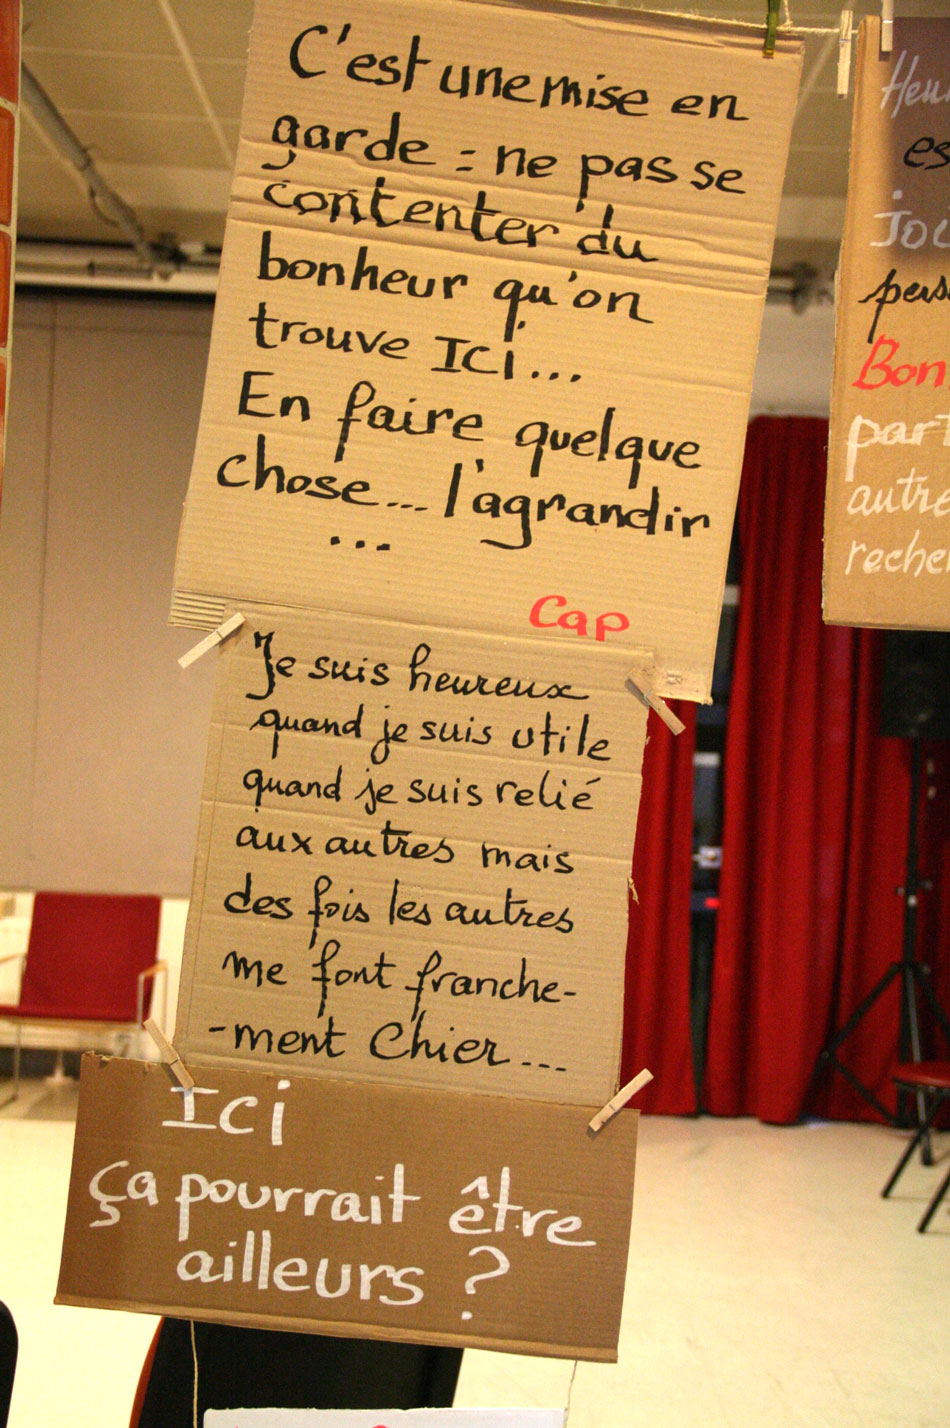 C'est une mise en
garde : ne pas se
contenter du
bonheur qu'on
trouve ICi...
En faire quelque
chose... l'agrandir
...
Cap
Je suis heureux
quand je suis utile
quand je suis relié
aux autres mais
des fois les autres
me font franche-
-ment Chier...
Ici
ça pourrait être
ailleurs ?
es
Bon
autre